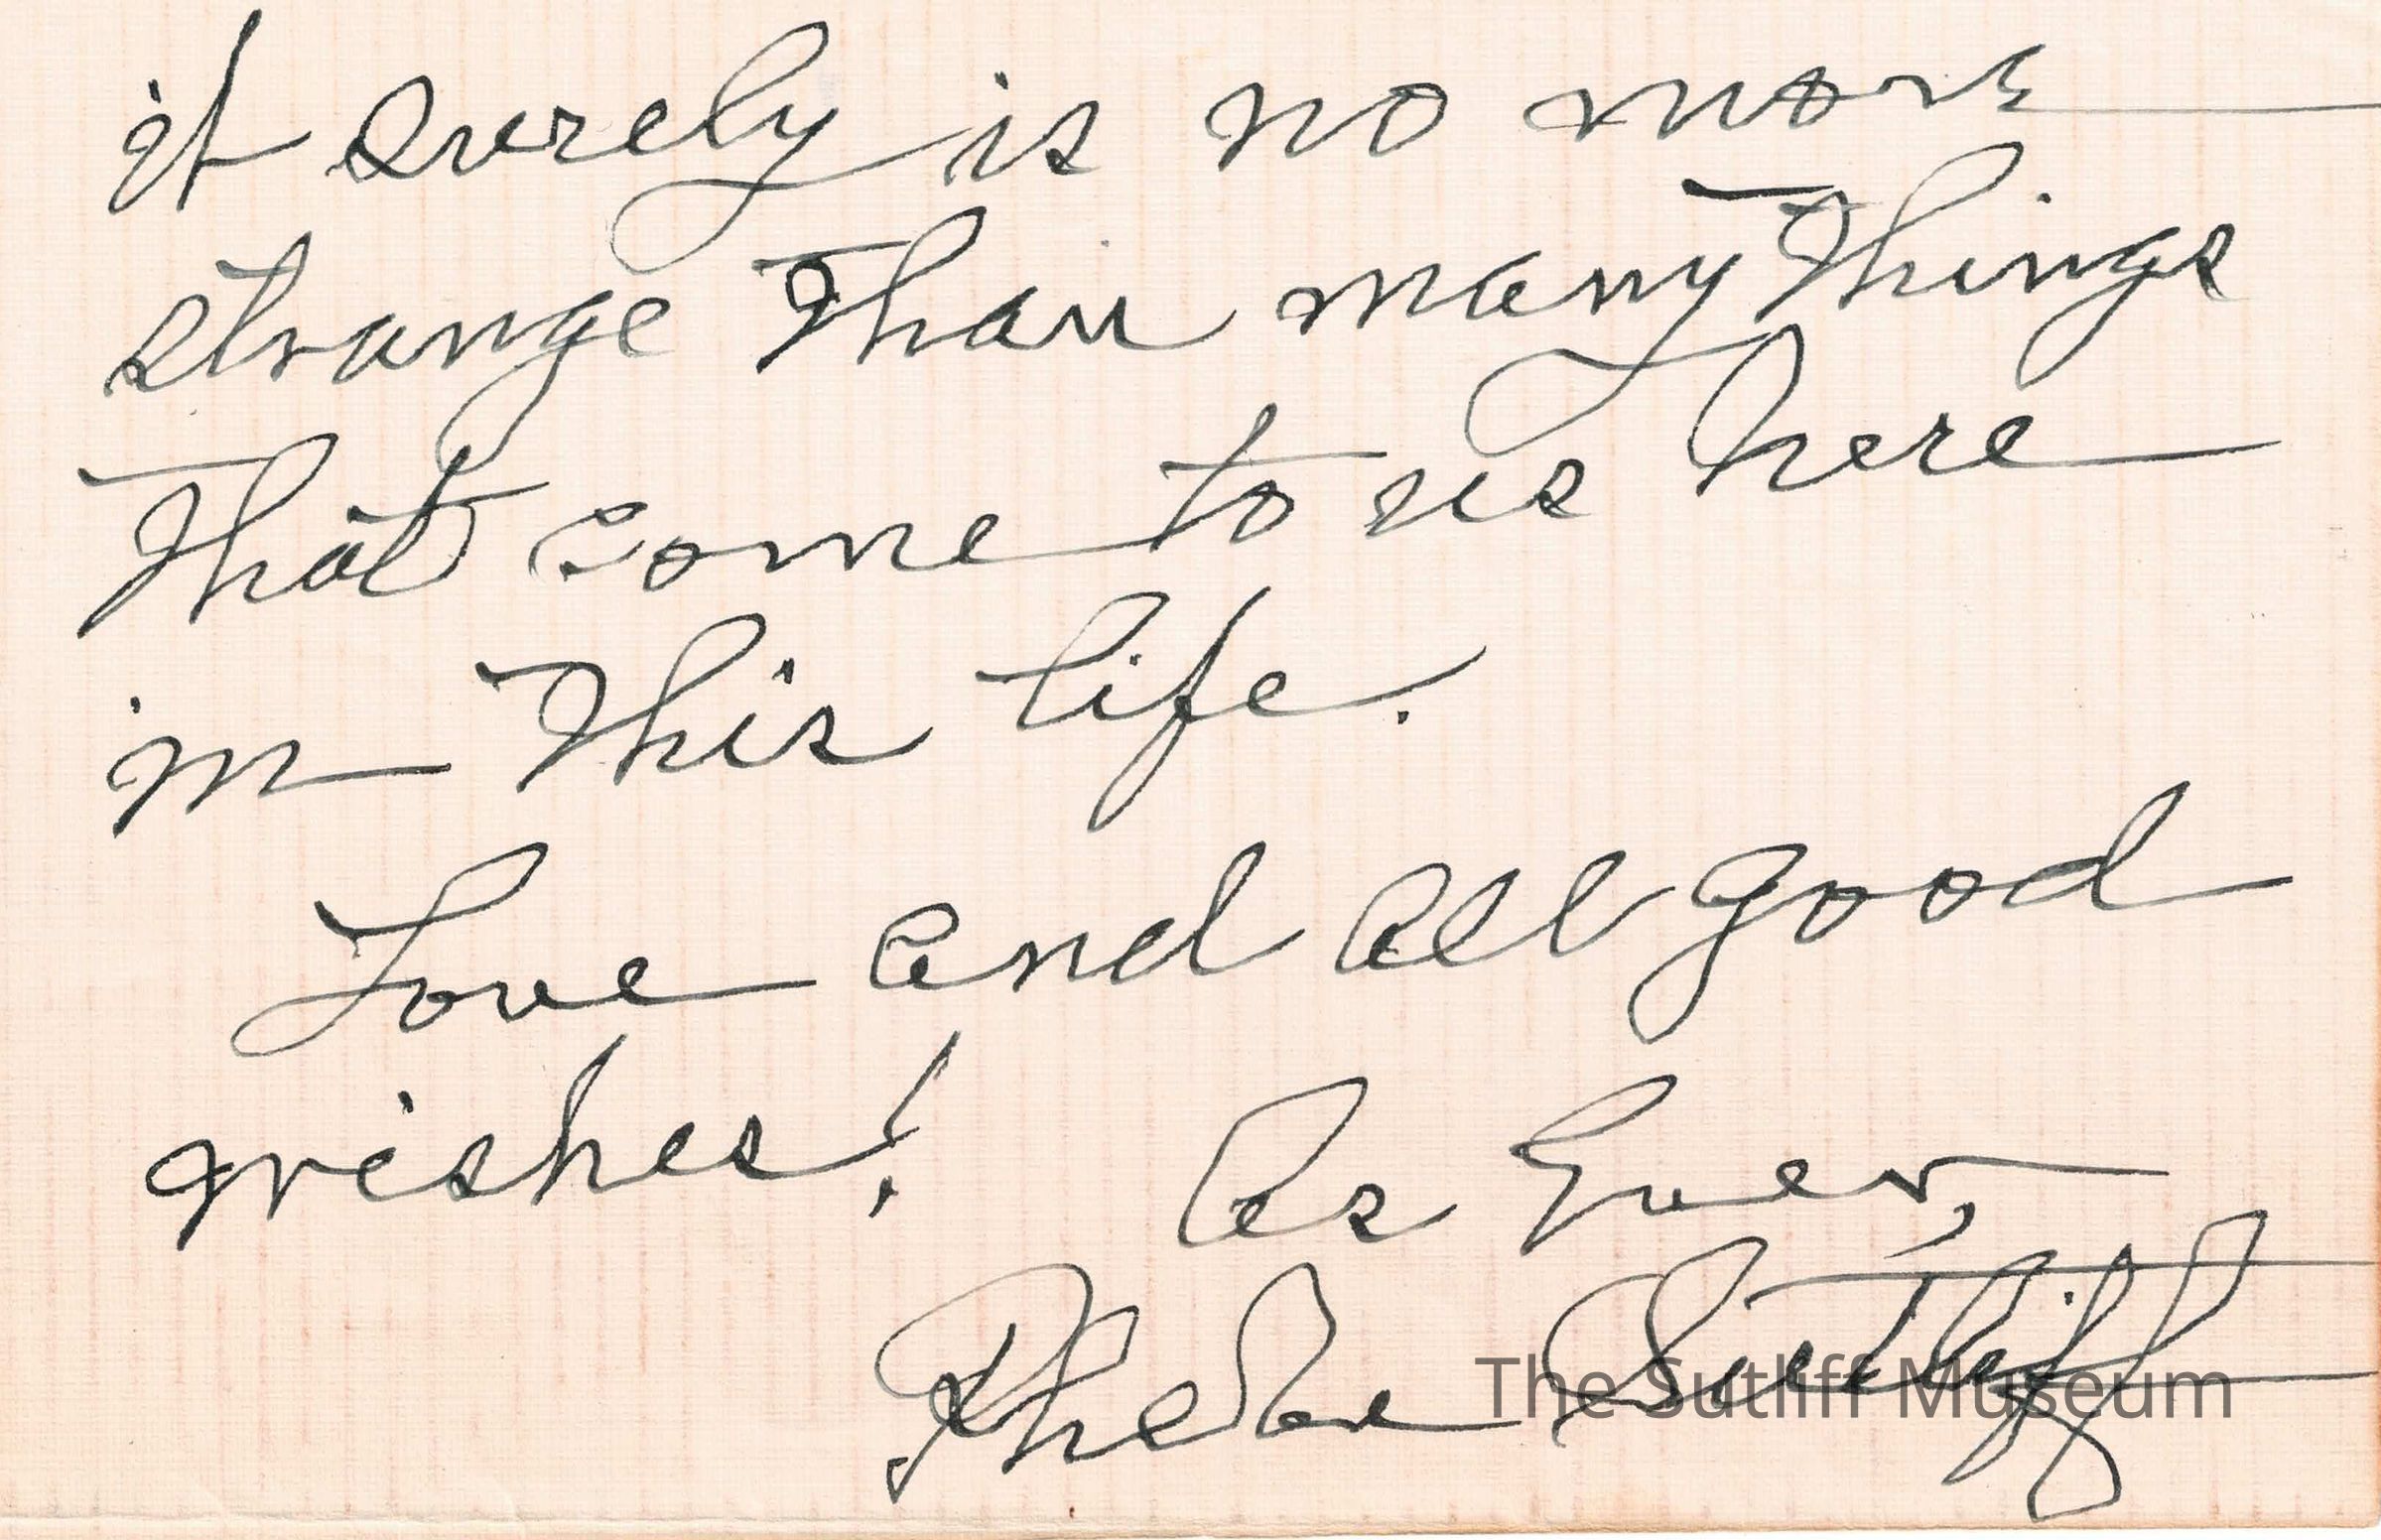 it surely is no more
strange than many things
that come to us here
in this life.
Love and all good
wishes! As Ever,
Phebe Sutliff
The Sutliff Museum